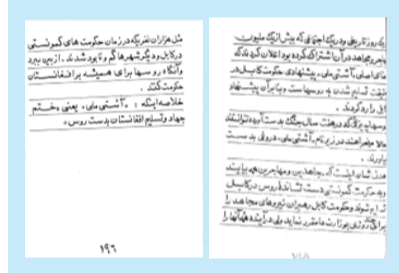 یک روز تاریخی و در یک اجتماعی که بیش از یک ملیون
مهاجر و مجاهد در آن اشتراک کرده بود اعلان کردند که
معنای اصلی آشتی ملی، پیشنهادی حکومت کابل در
حقیقت تسلیم شدن به روسهاست و بنابرآن پیشنهاد
کابل را رد کردند.
روسها چیزی را که در هفت سال جنگ بدست آورده نتوانستند
حالا میخواهند در زیر نام آشتی ملی، دروغی بدست
بیاورند.
هدف شان اینست که مجاهدین و مهاجرین همه بیایند
و به حکومت کمونستی دست نشاندهٔ روس در کابل
تسلیم شوند و حکومت کابل رهبران نیروهای مجاهد را
برای چند روزی بوزارت ها مقرر نماید ولی در آینده همهٔ آنها را
مثل هزاران نفریکه در زمان حکومت های کمونستی
در کابل و دیگر شهرها گم و نابود شدند، از بین ببرد
و آنگاه روسها برای همیشه بر افغانستان
حکومت کنند.
خلاصه اینکه: «آشتی ملی» یعنی «ختم
جهاد و تسلیم افغانستان بدست روس»
۱۹۶